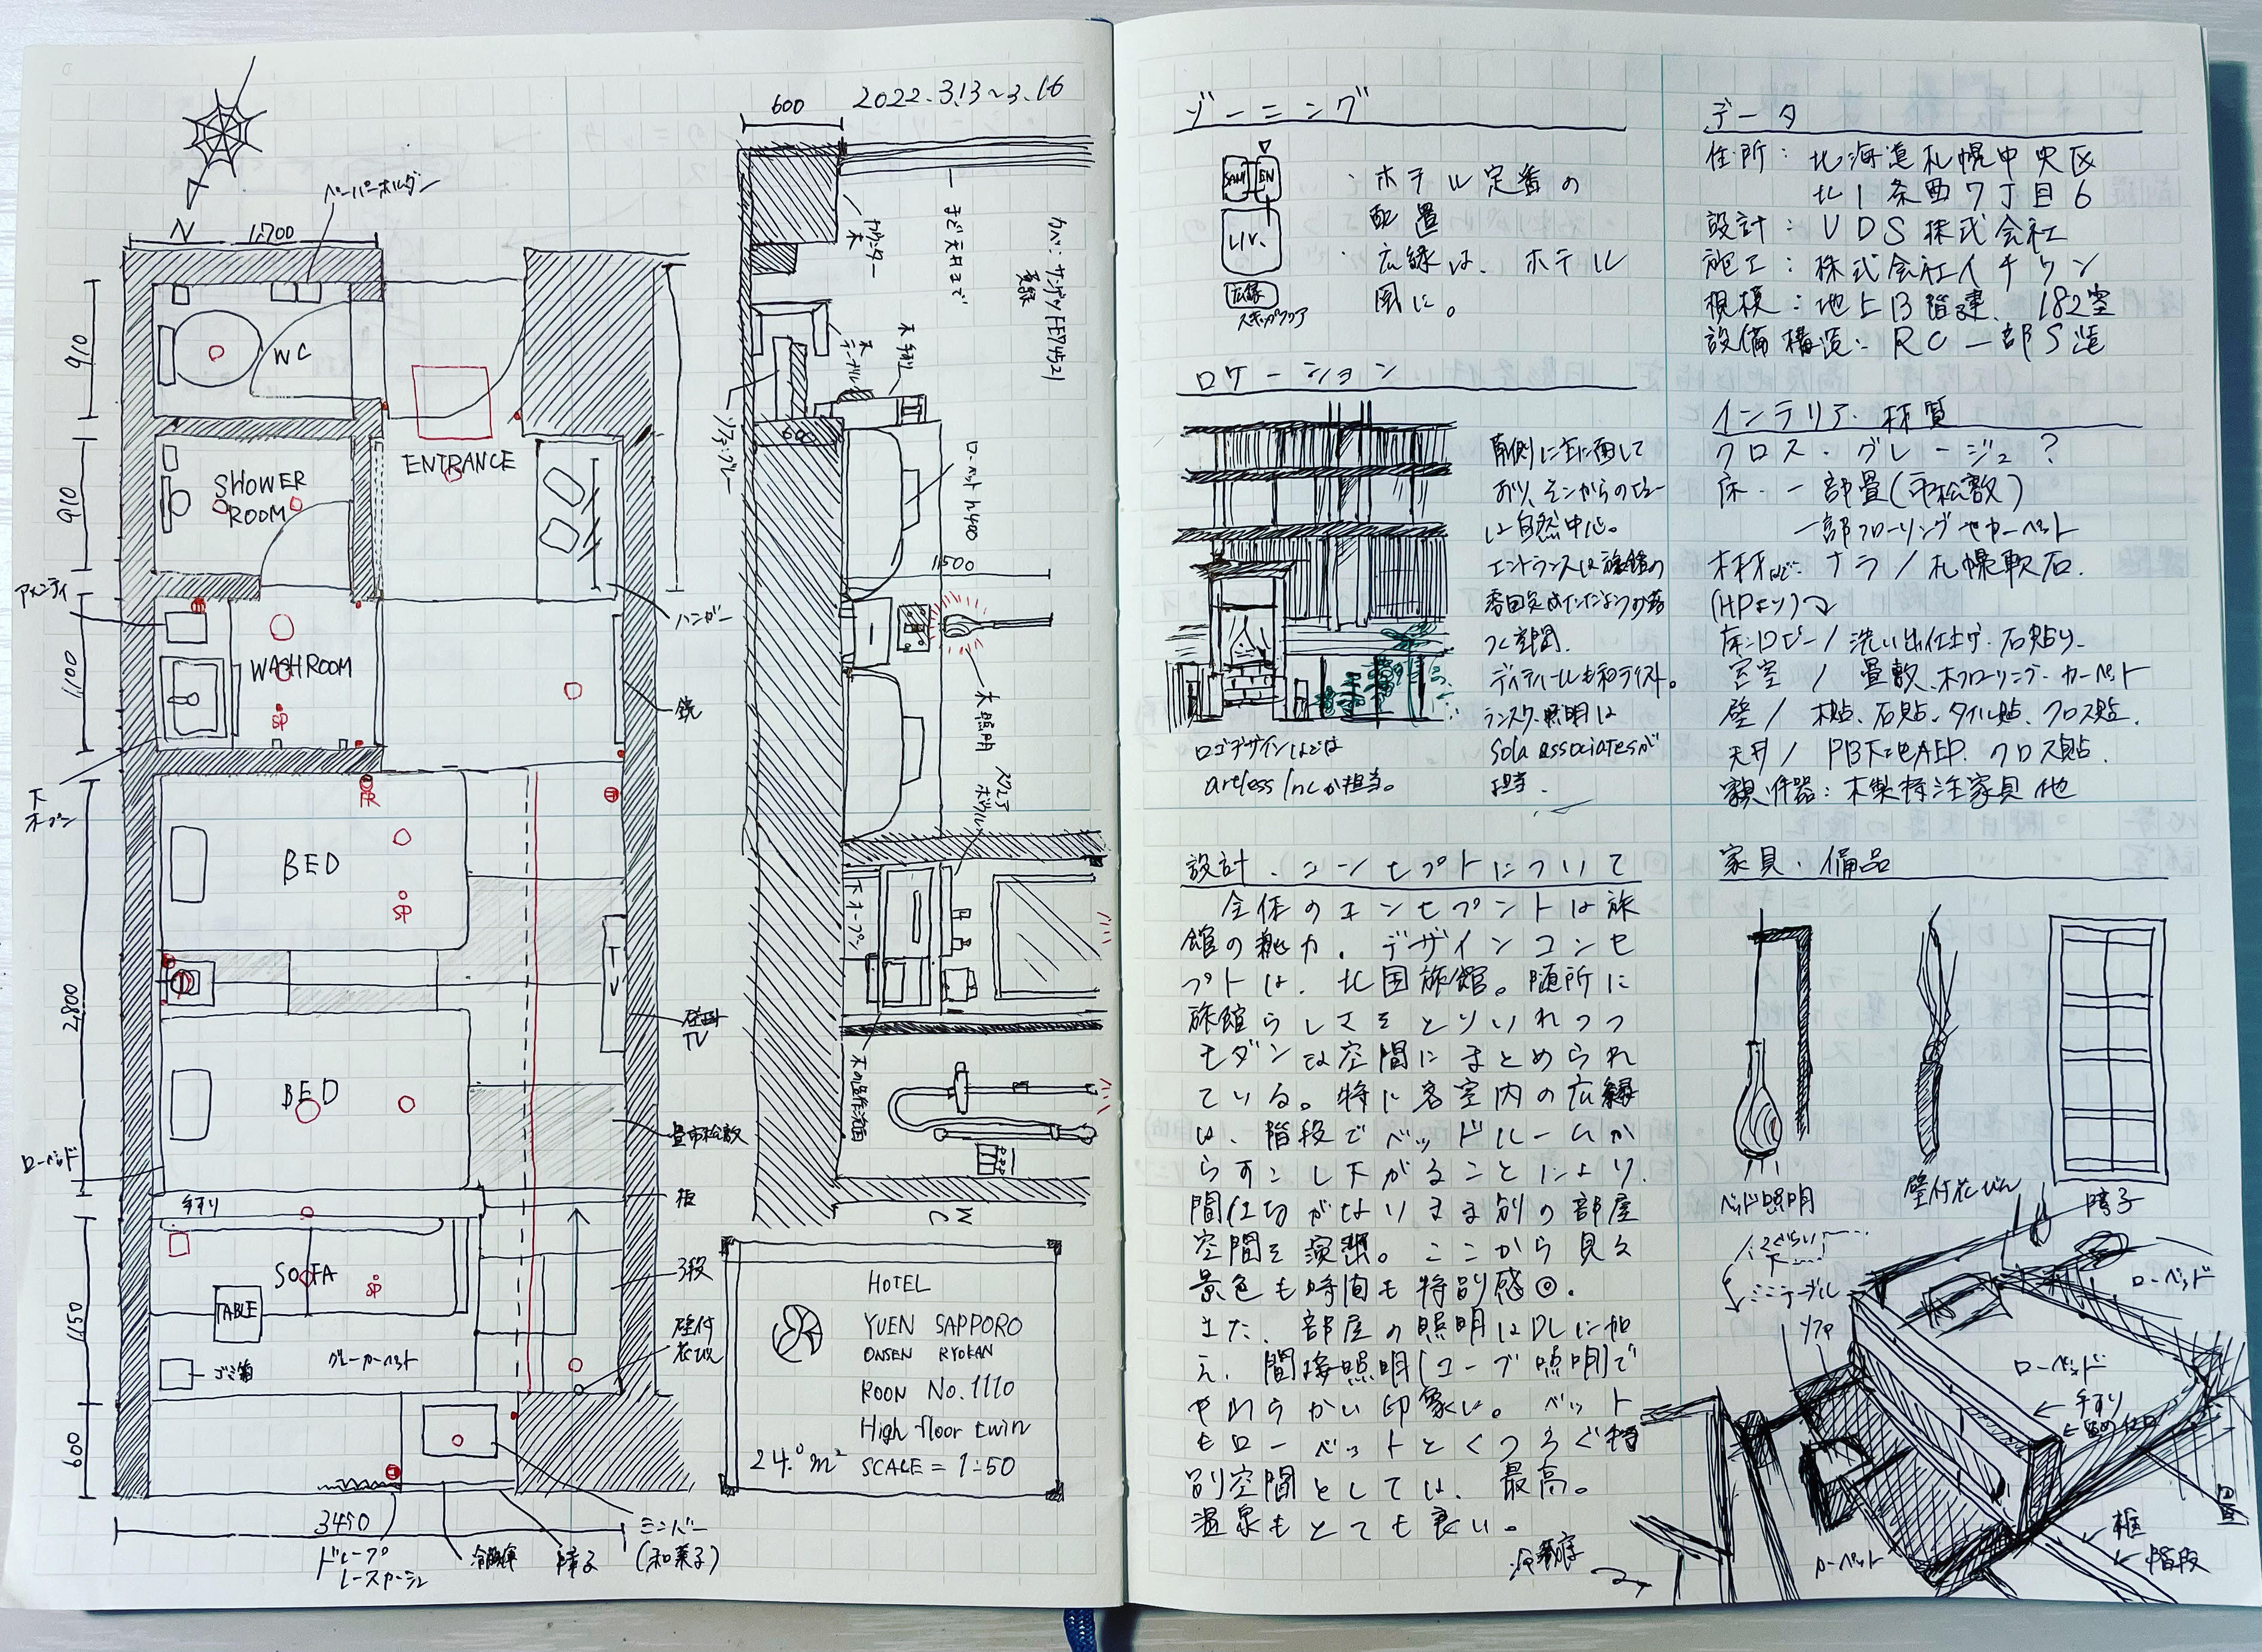 2022.3.13~3.16
ペーパーホルダー
N
1,700
910
WC
910
SHOWER
ROOM
ENTRANCE
アメニティ
ハンガー
1,100
WASHROOM
SP
鏡
下
オープン
BED
SP
2,800
TV
壁掛
TV
BED
畳市松敷
ローベッド
手すり
板
SOFA
SP
3段
TABLE
1,150
壁付
花びん
ゴミ箱
グレーカーペット
600
3450
ドレープ
レースカーテン
冷蔵庫
障子
ミニバー
(和菓子)
600
カウンター
木
まど天井まで
木手すり
ソファ:グレー
600
ローベット h400
1500
木照明
下オープン
木の造作洗面
WC
HOTEL
YUEN SAPPORO
ONSEN RYOKAN
ROON No.1110
High floor twin
SCALE = 1:50
ゾーニング
SANI
EN
LIV.
広縁
スキップフロア
・ホテル定番の
配置
・広縁は、ホテル
風に。
ロケーション
南側に主に面して
おり、そこからのビュー
は自然中心。
エントランスは旅館の
つく空間.
ディティールも和テイスト。
ランスケ、照明は
Sola associatesが
担当.
ロゴデザインなどは
artless Incが担当。
設計・コンセプトについて
全体のコンセプントは旅
館の魅力. デザインコンセ
プトは、北国旅館。随所に
旅館らしさをとりいれつつ
モダンな空間にまとめられ
ている。特に客室内の広縁
は、階段でベッドルームか
らすこし下がることにより、
間仕切がないまま別の部屋
空間を演出。ここから見る
景色も時間も特別感◎.
また、部屋の照明はDLに加
え、間接照明(コーブ照明)で
やわらかい印象に。ベット
もローベットとくつろぐ特
別空間としては、最高。
温泉もとても良い。
データ
住所: 北海道札幌中央区
北1条西7丁目6
設計: UDS株式会社
施工: 株式会社イチケン
規模: 地上13階建、182室
設備構造: RC一部S造
インテリア・材質
クロス・グレージュ?
床・一部畳(市松敷)
一部フローリングやカーペット
木材など: ナラ/札幌軟石.
(HPより)
床:ロビー/洗い出仕上げ・石貼り.
客室/畳敷、木フローリング・カーペット
壁/木貼、石貼、タイル貼、クロス貼.
天井/PB下地AEP、クロス貼.
家具什器: 木製特注家具他
家具・備品
ベッド照明
壁付花びん
障子
ミニテーブル
ソファ
ローベッド
ローベッド
手すり
畳
框
階段
カーペット
冷蔵庫